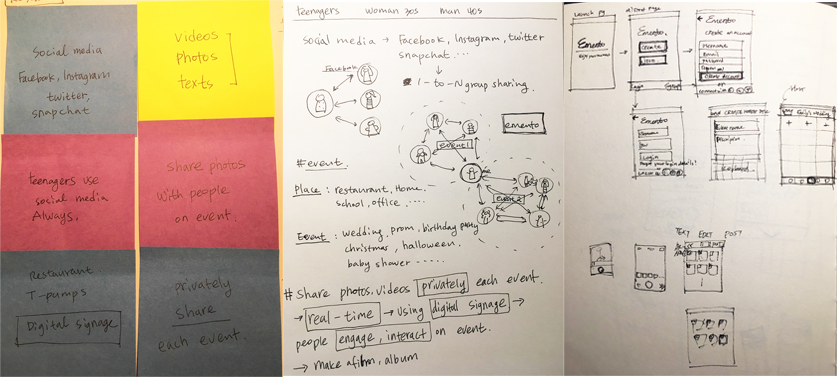 Social media
Facebook, Instagram
twitter,
snapchat
videos
photos
texts
teenagers use
social media
Always.
share photos
with people
on event.
Restaurant
T-pumps
Digital signage
privately
share
each event.
teenagers woman 30s man 40s
social media → Facebook, Instagram, twitter
snapchat ...
1-to-N group sharing
Facebook
emento
event1
event 2
#event.
Place : restaurant, Home,
school, office, ....
Event : wedding, prom, birthday party
christmas, halloween,
baby shower .....
# Share photos, videos privately each event.
→ real-time → using digital signage →
people engage, interact on event.
→ make a film, album
Launch pg
Emento
Emento.
create
← Emento
create an account
Username
Email
Password
create Account
or
← Emento
Login
Keyboard
TEXT EDIT POST